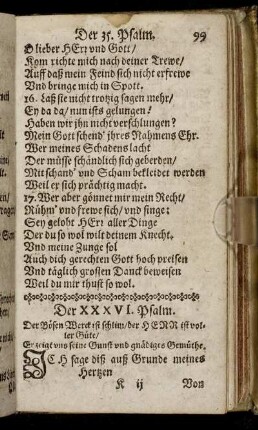 Der 35. Psalm. 99
O lieber HErr und Gott/
Kom richte mich nach deiner Trewe/
Auff daß mein Feind sich nicht erfrewe
Vnd bringe mich in Spott.
16. Laß sie nicht trotzig sagen mehr/
Ey da da/ nun ists gelungen!
Haben wir jhn nicht verschlungen?
Mein Gott schend' jhres Nahmens Ehr.
Wer meines Schadens lacht
Der müsse schändlich sich geberden/
Mit schand' und Scham bekleidet werden
Weil er sich prächtig macht.
17. Wer aber gönnet mir mein Recht/
Rühm' vnd frewe sich/ vnd singe:
Sey gelobt HErr aller Dinge
Der du so wol wilt deinem Knecht.
Vnd meine Zunge sol
Auch dich gerechten Gott hoch preisen
Vnd täglich grossen Danck beweisen
Weil du mir thust so wol.
Der XXXVI. Psalm.
Der Bösen Werck ist schlim/ der HERR ist vol-
ler Güte/
Er zeigt uns seine Gunst vnd gnädiges Gemüthe.
ICH sage diß auß Grunde meines
Hertzen
K ij Von